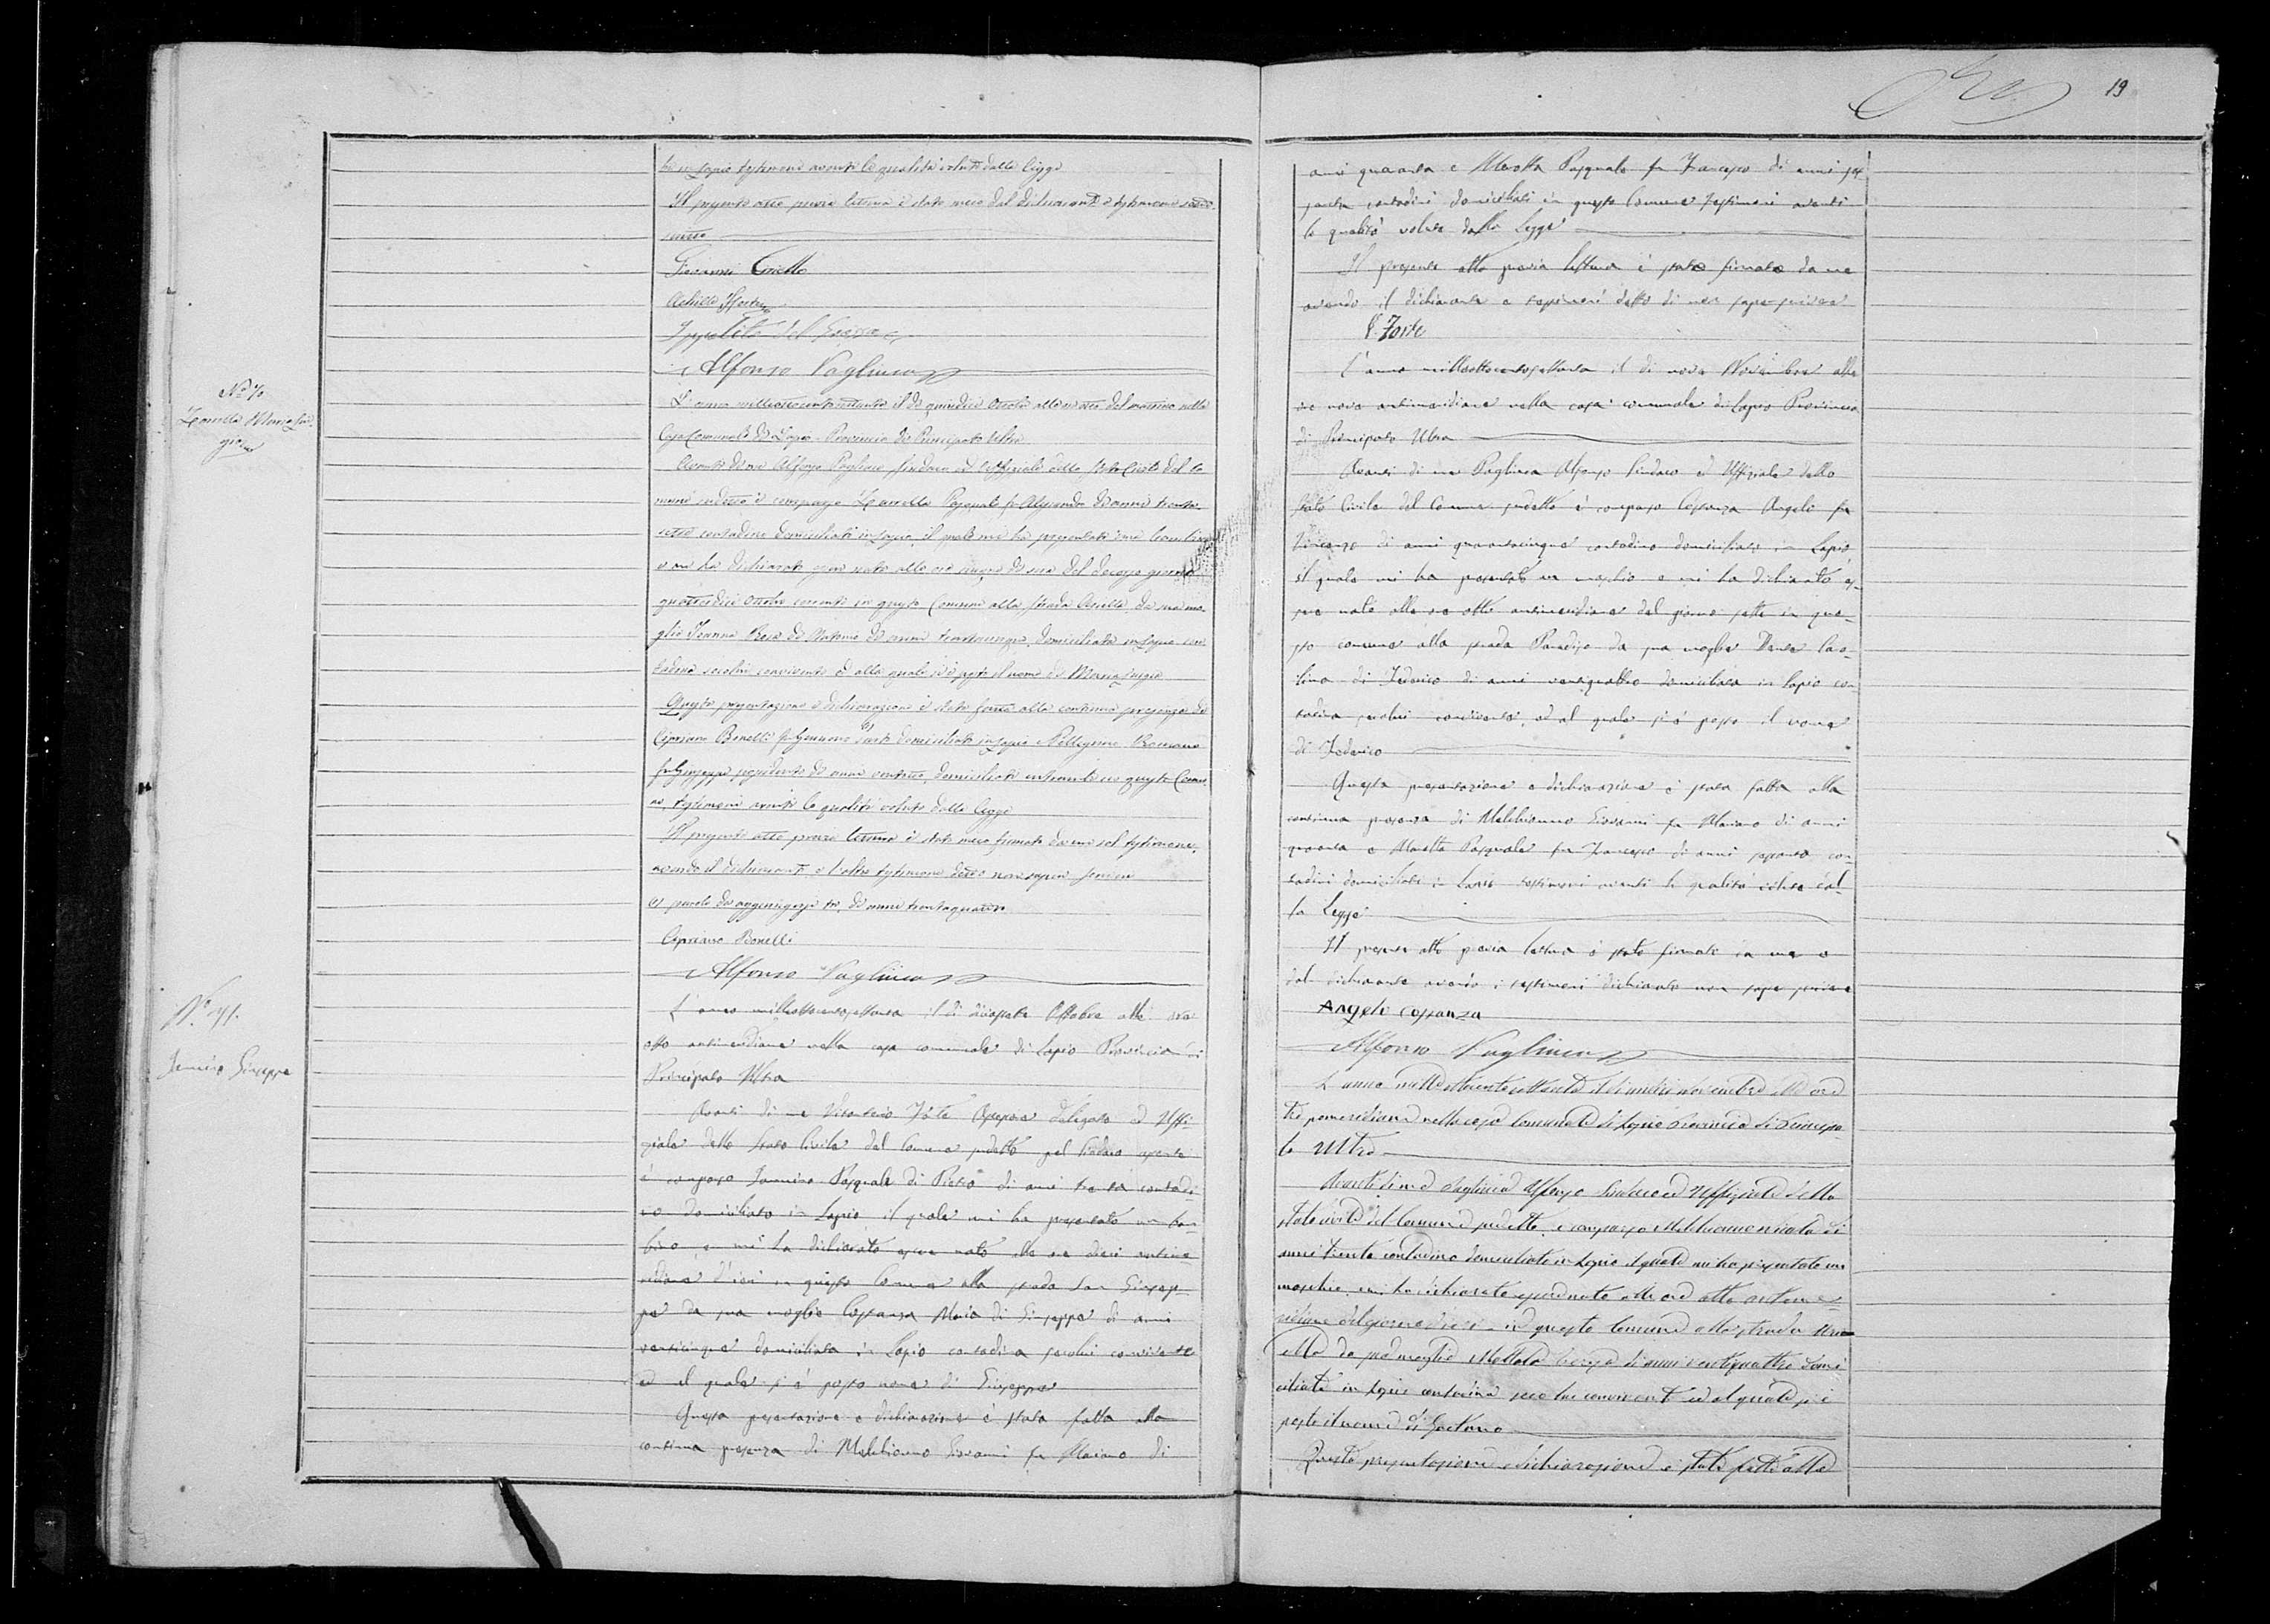 19
in Lapio testimoni aventi le qualità volute dalla Legge
Il presente atto previa lettura è stato meco dal dichiarante e testimoni sotto-
scritto
Giovanni Coriello
Achille
Ippolito del
Alfonso Pagliuca
No 70
Zarrella Maria Lui-
gia
L'anno milleottocentosettanta il dì quindici Ottobre alle ore otto del mattino nella
Casa Comunale di Lapio Provincia di Principato Ultra
Avanti di me Alfonso Pagliuca Sindaco ed Uffiziale dello Stato Civile del Co-
mune suddetto è comparso Zarrella Pasquale fu Alessandro di anni trenta-
sette contadino domiciliato in Lapio, il quale mi ha presentato una bambina
e mi ha dichiarato esser nata alle ore cinque di sera del decorso giorno
quattordici Ottobre corrente in questo Comune alla strada Arielle da sua mo-
glie Rosa di Antonio di anni trentacinque, domiciliata in Lapio con-
tadina secolui convivente ed alla quale si è posto il nome di Maria Luigia
Questa presentazione e dichiarazione è stata fatta alla continua presenza di
Cipriano Bonelli fu Gennaro sarto domiciliato in Lapio e Pellegrino Romano
fu Giuseppe possidente di anni domiciliati entrambi in questo Comu-
ne, testimoni aventi le qualità volute dalla Legge
Il presente atto previa lettura è stato meco firmato da un sol testimone,
avendo il dichiarante e l'altro testimone detto non saper scrivere
parole da aggiungersi di anni trentaquattro
Cipriano Bonelli
Alfonso Pagliuca
No. 71.
Iannino Giuseppe
L'anno milleottocentosettanta il dì diciassette Ottobre alle ore
otto antimeridiane nella casa comunale di Lapio Provincia di
Principato Ultra
Avanti di me Forte Assessore delegato ed Uffi-
ziale dello Stato Civile del Comune suddetto pel Sindaco assente
è comparso Iannino Pasquale di Pietro di anni trenta contadi-
no domiciliato in Lapio, il quale mi ha presentato un bam-
bino, e mi ha dichiarato esser nato alle ore dieci antime-
ridiane d'ieri in questo Comune alla strada San Giusep-
pe da sua moglie Costanza Maria di Giuseppe di anni
venticinque domiciliata in Lapio contadina secolui convivente
ed al quale si è posto nome di Giuseppe
Questa presentazione e dichiarazione è stata fatta alla
continua presenza di Melchionno Giovanni fu Mariano di
anni quaranta e Marotta Pasquale fu Francesco di anni ses-
santa contadini domiciliati in questo Comune testimoni aventi
le qualità volute dalla Legge
Il presente atto previa lettura è stato firmato da me
avendo il dichiarante e testimoni detto di non saper scrivere
V. Forte
L'anno milleottocentosettanta il dì nove Novembre alle
ore nove antimeridiane nella casa comunale di Lapio Provincia
di Principato Ultra
Avanti di me Pagliuca Alfonso Sindaco ed Uffiziale dello
Stato Civile del Comune suddetto è comparso Costanza Angelo fu
Vincenzo di anni quarantacinque contadino domiciliato in Lapio,
il quale mi ha presentato un maschio e mi ha dichiarato es-
ser nato alle ore otto antimeridiane del giorno sette in que-
sto comune alla strada Paradiso da sua moglie Caro-
lina di Federico di anni ventiquattro domiciliata in Lapio con-
tadina secolui convivente, ed al quale si è posto il nome
di Federico
Questa presentazione e dichiarazione è stata fatta alla
continua presenza di Melchionno Giovanni fu Mariano di anni
quaranta e Marotta Pasquale fu Francesco di anni sessanta, con-
tadini domiciliati in Lapio testimoni aventi le qualità volute dal-
la Legge
Il presente atto previa lettura è stato firmato da me e
dal dichiarante avendo i testimoni dichiarato non saper scrivere
Angelo Costanza
Alfonso Pagliuca
L'anno milleottocentosettanta il dì undici novembre alle ore
tre pomeridiane nella casa comunale di Lapio Provincia di Principa-
to Ultra
Avanti di me Pagliuca Alfonso Sindaco ed Uffiziale dello
stato civile del Comune suddetto è comparso Melchionno Nicola di
anni trenta contadino domiciliato in Lapio il quale mi ha presentato un
maschio, e mi ha dichiarato esser nato alle ore otto antime-
ridiane del giorno dieci in questo Comune alla strada Ari-
ella da sua moglie di anni ventiquattro domi-
ciliata in Lapio contadina seco lui convivente ed al quale si è
posto il nome di Gaetano
Questa presentazione e dichiarazione è stata fatta alla